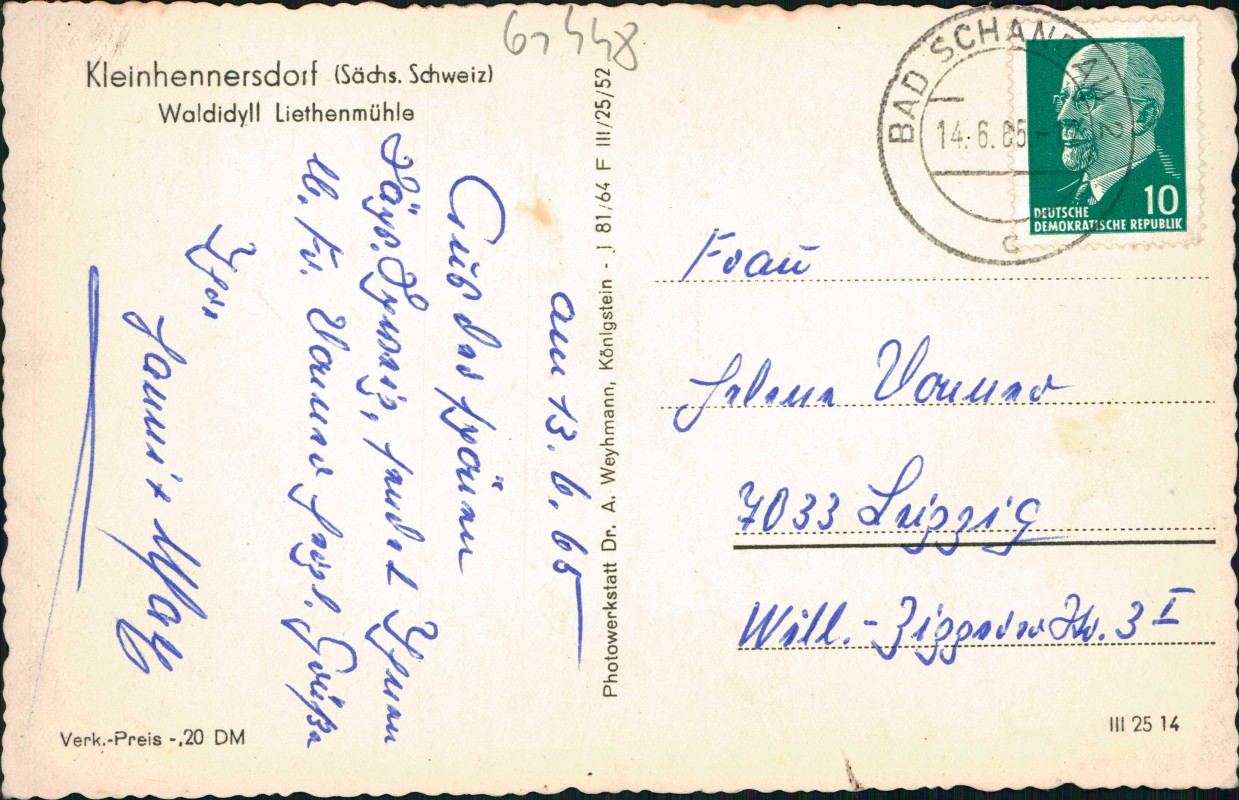 Kleinhennersdorf (Sächs. Schweiz)
Waldidyll Liethenmühle
am 13. 6. 65
Aus der schönen
Sächs. Schweiz, sendet Ihnen
u. Fr. Vommer herzl. Grüße
Ihr
Verk.-Preis -,20 DM
Photowerkstatt Dr. A. Weyhmann, Königstein - J 81/64 F III/25/52
BAD SCHANDAU 2
14.6.65
c
10
DEUTSCHE
DEMOKRATISCHE REPUBLIK
Frau
Helene Vommer
7033 Leipzig
Will.-Zipperer Str. 3 I
III 25 14